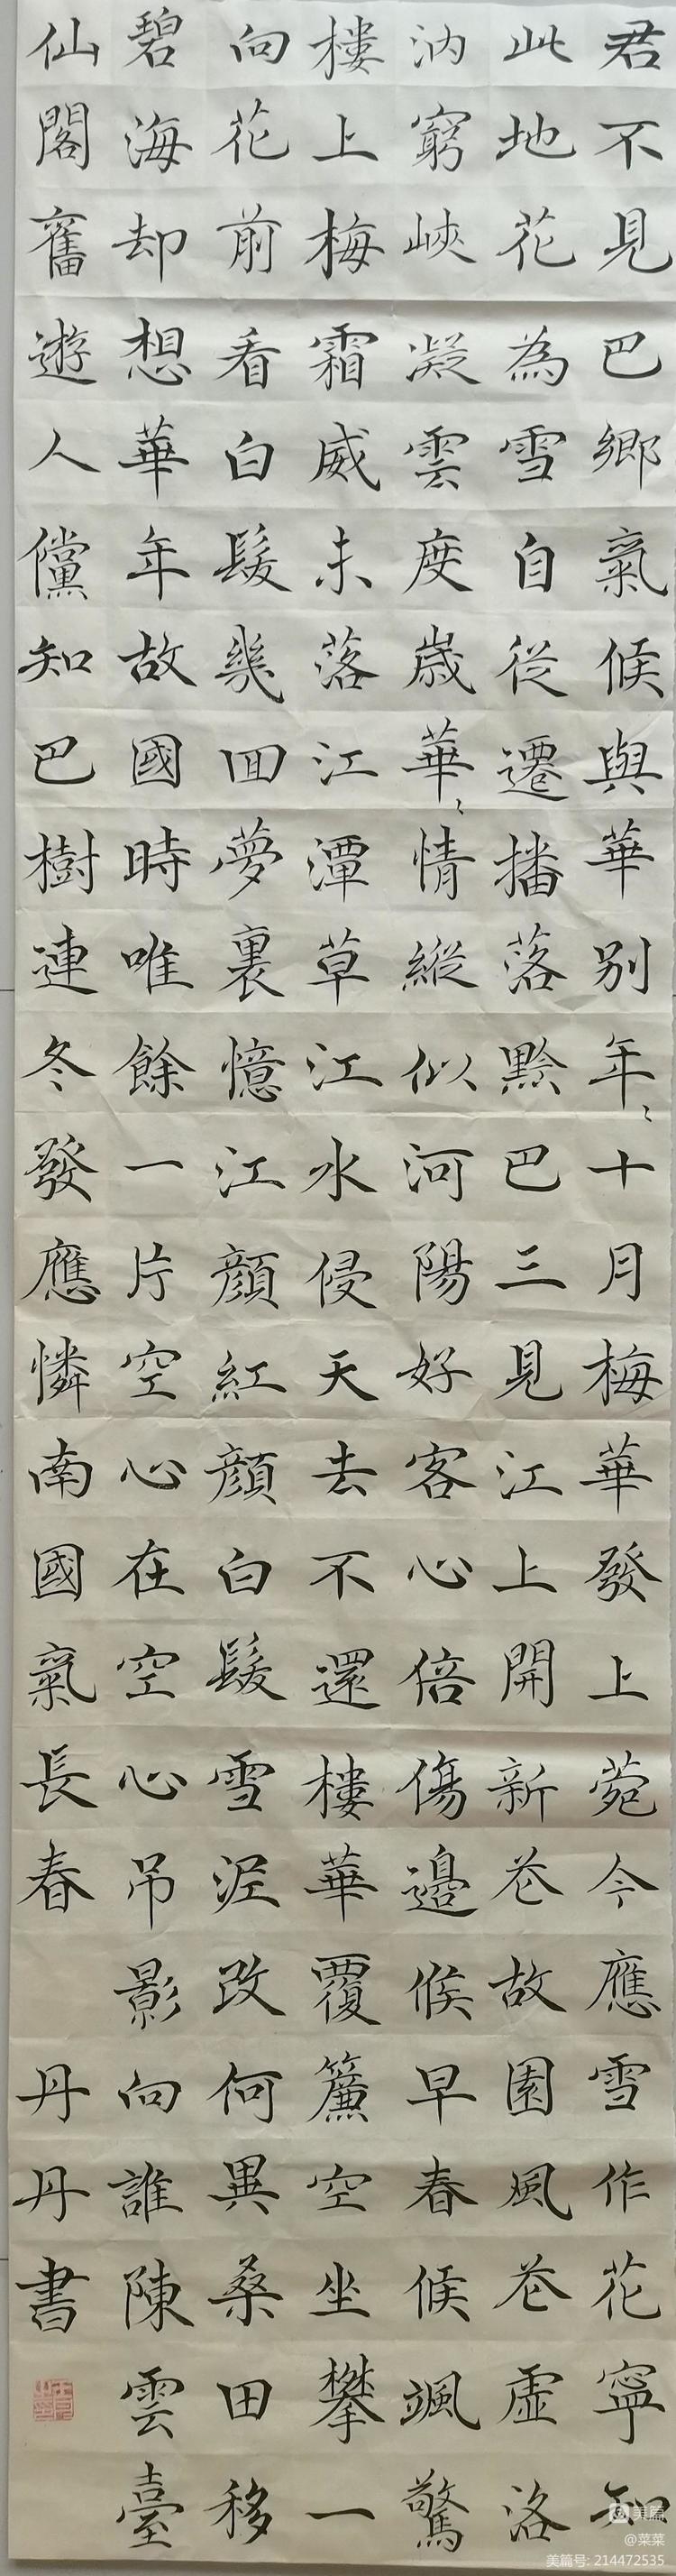 君不見巴鄉氣候與華別年〻十月梅華發上菀今應雪作花寧知
此地花為雪自從遷播落黔巴三見江上開新花故園風花虛洛
汭窮峽凝雲度歲華〻情縱似河陽好客心倍傷邊候早春候颯驚
樓上梅霜威未落江潭草江水侵天去不還樓華覆簾空坐攀一
向花前看白髮幾回夢裏憶江顏紅顏白髮雪泥改何異桑田移
碧海却想華年故國時唯餘一片空心在空心吊影向誰陳雲臺
仙閣舊遊人儻知巴樹連冬發應憐南國氣長春
丹丹書
美篇
@菜菜
美篇号: 214472535